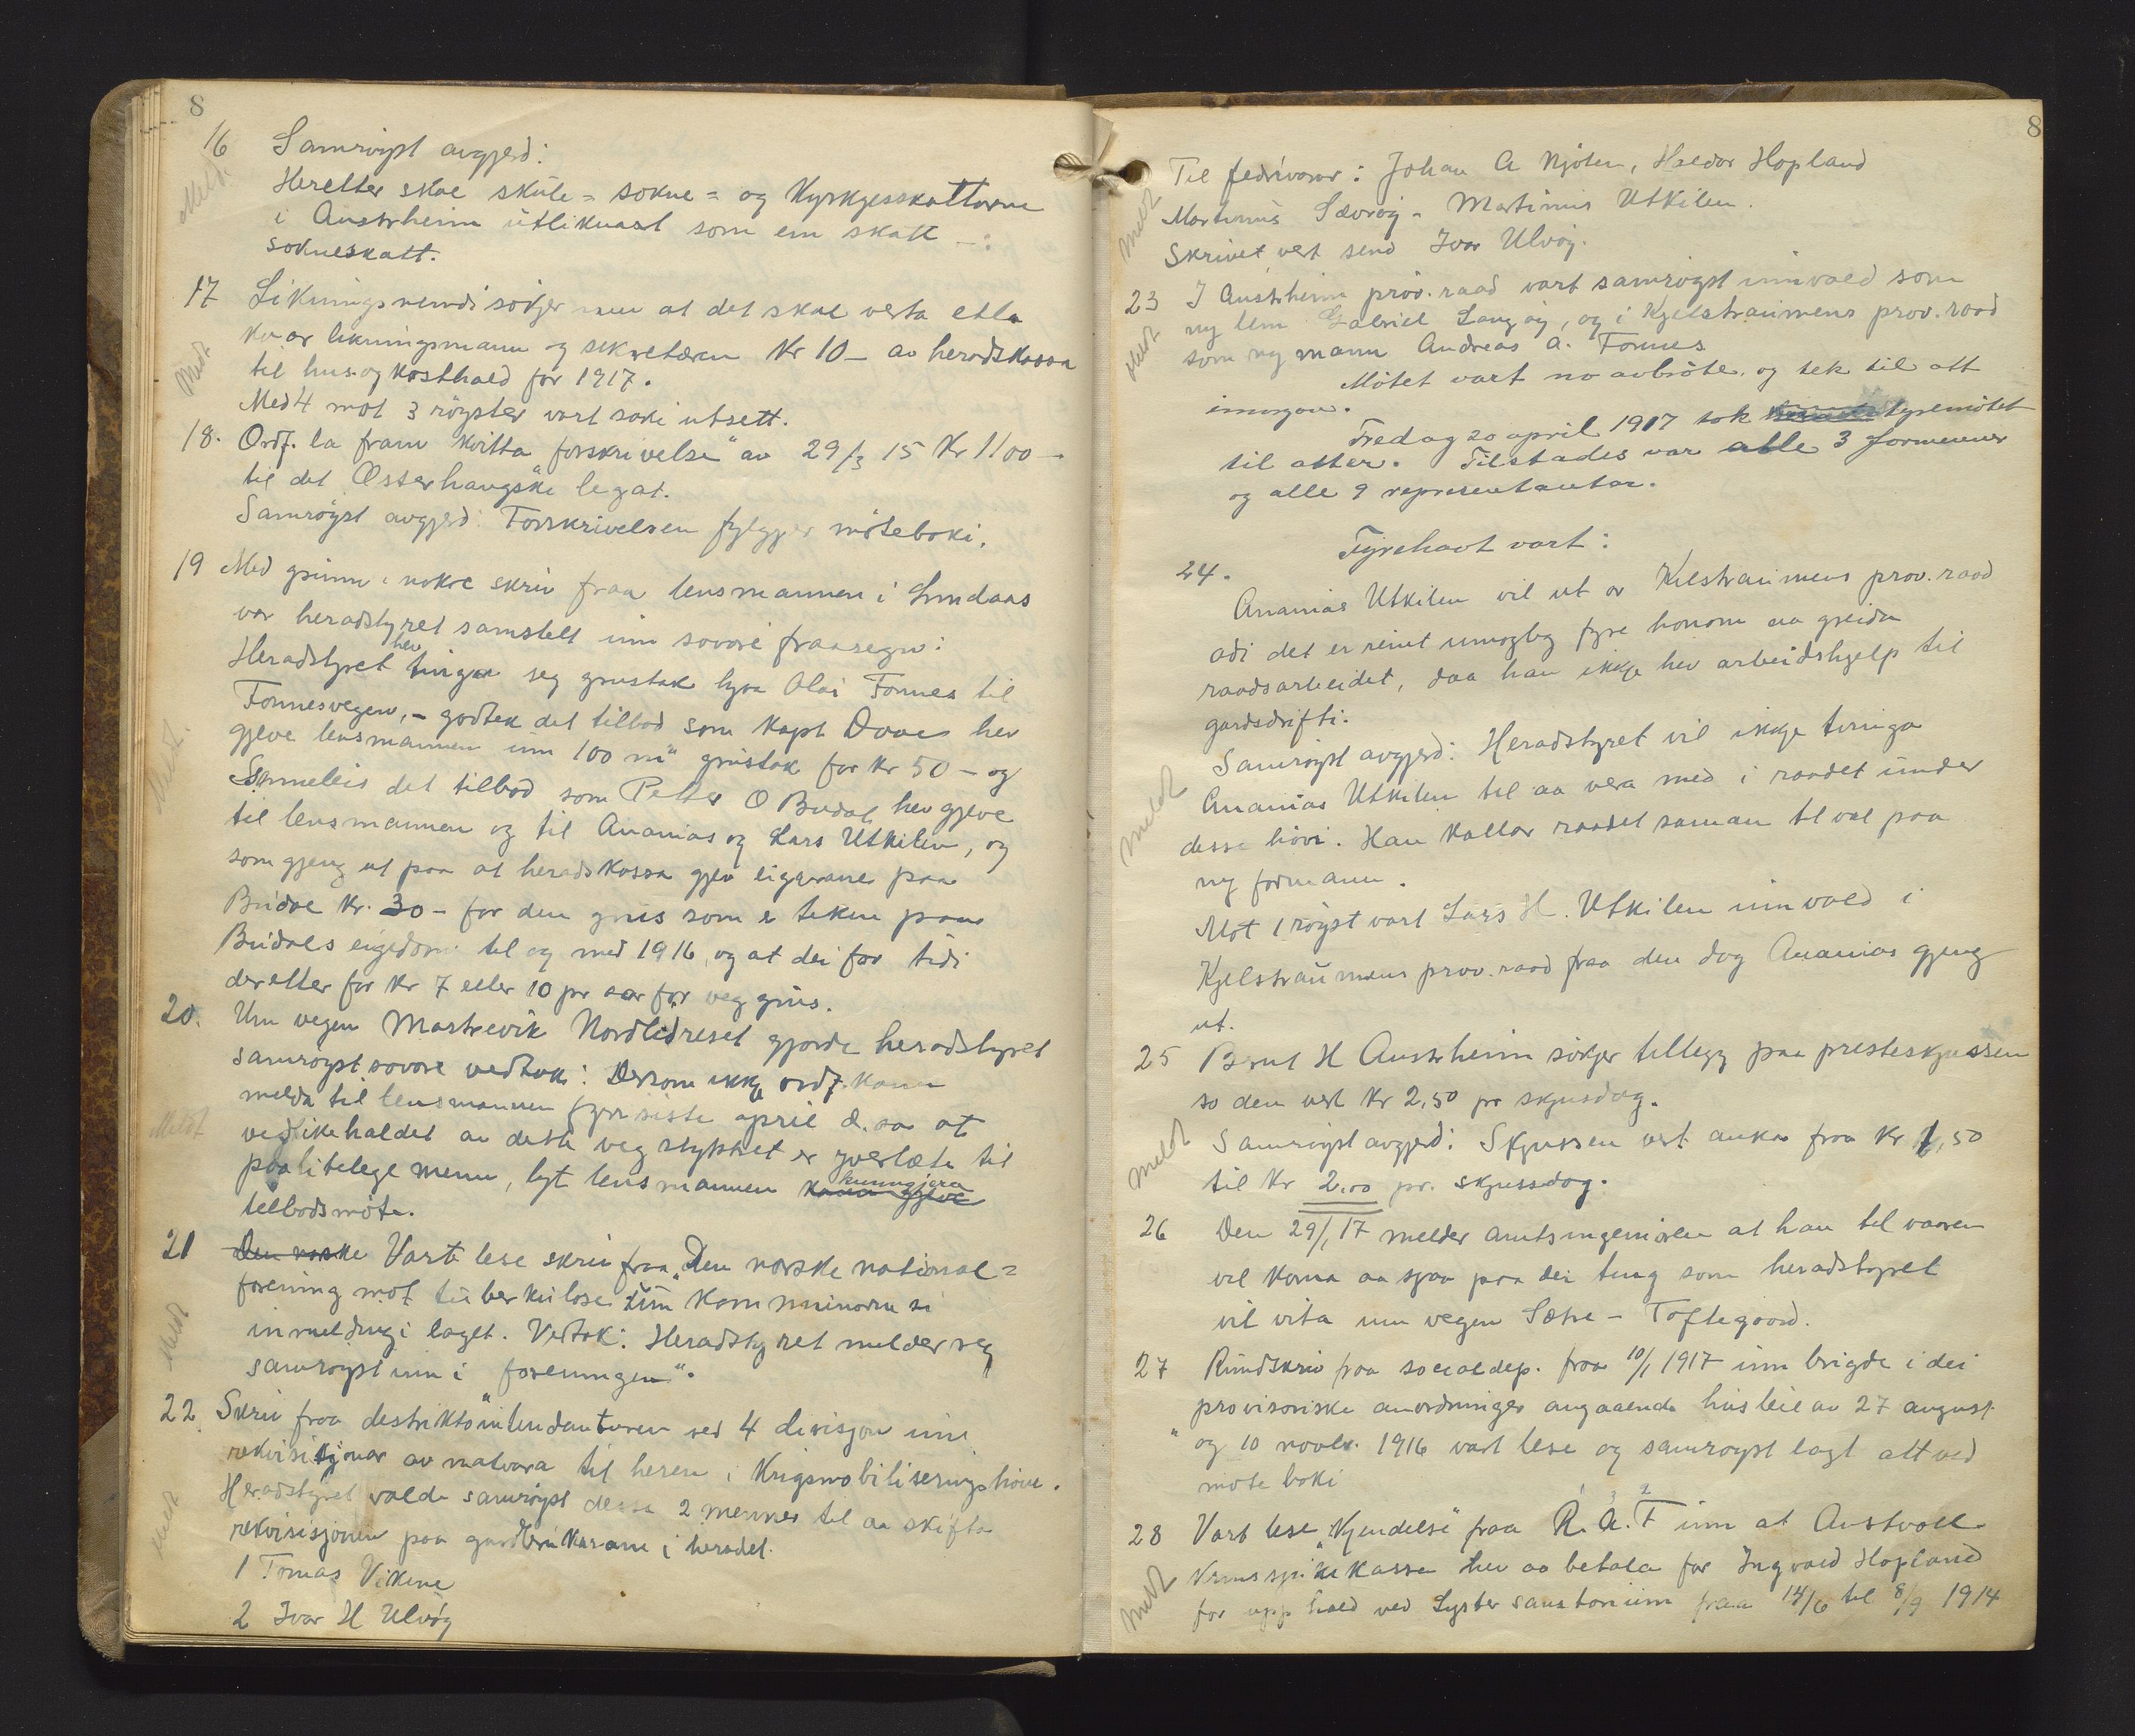 8
16 Samrøyst avgjerd:
Meldt
Heretter skal skule = sokne = og Kyrkjesskattarne
i Austrheim utliknast som ein skatt –:
sokneskatt.
17 Likningsnemdi søkjer um at det skal verta etla
kvar likningsmann og sekretæren Kr 10 – av heradskassa
Meldt
til hus- og kosthald for 1917.
Med 4 mot 3 røyster vart saki utsett.
18. Ordf. la fram kvitta "forskrivelse" av 29/3 15 Kr 1100 –
til det Østerhaugske legat.
Samrøyst avgjerd: Forskrivelsen fylgjer møteboki.
19 Med grunn i nokre skriv fraa lensmannen i Lindaas
var heradstyret samstelt um sovore fraasegn:
Heradstyret hev tinga seg grustak hjaa Olai Fonnes til
Fonnesvegen, – godtek det tilbod som Kapt Daae hev
Meldt.
gjeve lensmannen um 100 m³ grustak for kr 50 – og
Sameleis det tilbod som Peter O Budal hev gjeve
til lensmannen og til Ananias og Lars Utkilen, og
som gjeng ut paa at heradskassa gjev eigarane paa
Budal Kr. 30 – for den grus som er teken paa
Budals eigedom til og med 1916, og at dei for tidi
deretter faar Kr 7 eller 10 pr aar for veggrus.
20. Um vegen Mastrevik Nordlidreset gjorde heradstyret
samrøyst sovore vedtak: Dersom ikkje ordf. kann
melda til lensmannen fyrr siste april d. aa at
Meldt
vedlikehaldet av dette vegstykket er yverlæte til
paalitelege menn, lyt lensmannen kunngjera
tilbodsmøte.
21 Den norske Vart lese skriv fraa "Den norske national=
forening mot tuberkulose" um kommunarne si
Meldt
innmelding i laget. Vedtak: Heradstyret melder seg
samrøyst inn i "foreningen".
22. Skriv fraa distriktsintendanturen ved 4 divisjon um
rekvisisjonar av matvara til heren i Krigsmobiliseringshøve.
Heradstyret valde samrøyst desse 2 menner til aa skifta
Meldt
rekvisisjonen paa gardbrukarane i heradet.
1 Tomas Vikene
2 Ivar H Ulvøy
8
Til fedrivarar: Johan A Njøten, Haldor Hopland
Meldt
Martinus Sævrøy – Martinus Utkilen.
Skrivet vert send Ivar Ulvøy.
23 I Austrheim prov. raad vart samrøyst innvald som
ny lem Gabriel Langøy, og i Kjelstraumens prov. raad
Meldt
som ny mann Andreas A. Fonnes
Møtet vart no avbrote, og tek til att
imorgon.
Fredag 20 april 1917 tok styremøtet
til atter. Tilstades var alle 3 formenner
og alle 9 representantar.
Fyrehavt vart:
24.
Ananias Utkilen vil ut or Kilstraumens prov. raad
adi det er reint umogleg fyre honom aa greida
raadsarbeidet, daa han ikkje hev arbeidshjelp til
gardsdrifti.
Samrøyst avgjerd: Heradstyret vil ikkje tvinga
Meldt
Ananias Utkilen til aa vera med i raadet under
desse høvi. Han kallar raadet saman til val paa
ny formann.
Mot 1 røyst vart Lars H. Utkilen innvald i
Kjelstraumens prov. raad fraa den dag Ananias gjeng
ut.
25 Bernt H Austrheim søkjer tillegg paa presteskjussen
so den vert Kr 2,50 pr skjusdag.
Meldt
Samrøyst avgjerd: Skjussen vert auka fraa Kr 1,50
til Kr 2,00 pr. skjussdag.
26 Den 29/1 17 melder amtsingeniøren at han til vaaren
vil koma aa sjaa paa dei ting som heradstyret
vil vita um vegen Sætre – Toftegaard.
27 Rundskriv fraa socialdep. fraa 10/1 1917 um brigde i dei
provisoriske anordninger angaaende husleie av 27 august
" og 10 novbr. 1916 vart lese og samrøyst lagt att ved
møteboki
28 Vart lese "Kjendelse" fraa R. A. F um at Austvoll
Meldt
Krinssjukekassa hev aa betala for Ingvald Hopland
for upphald ved Lyster sanatorium fraa 14/6 til 8/9 1914